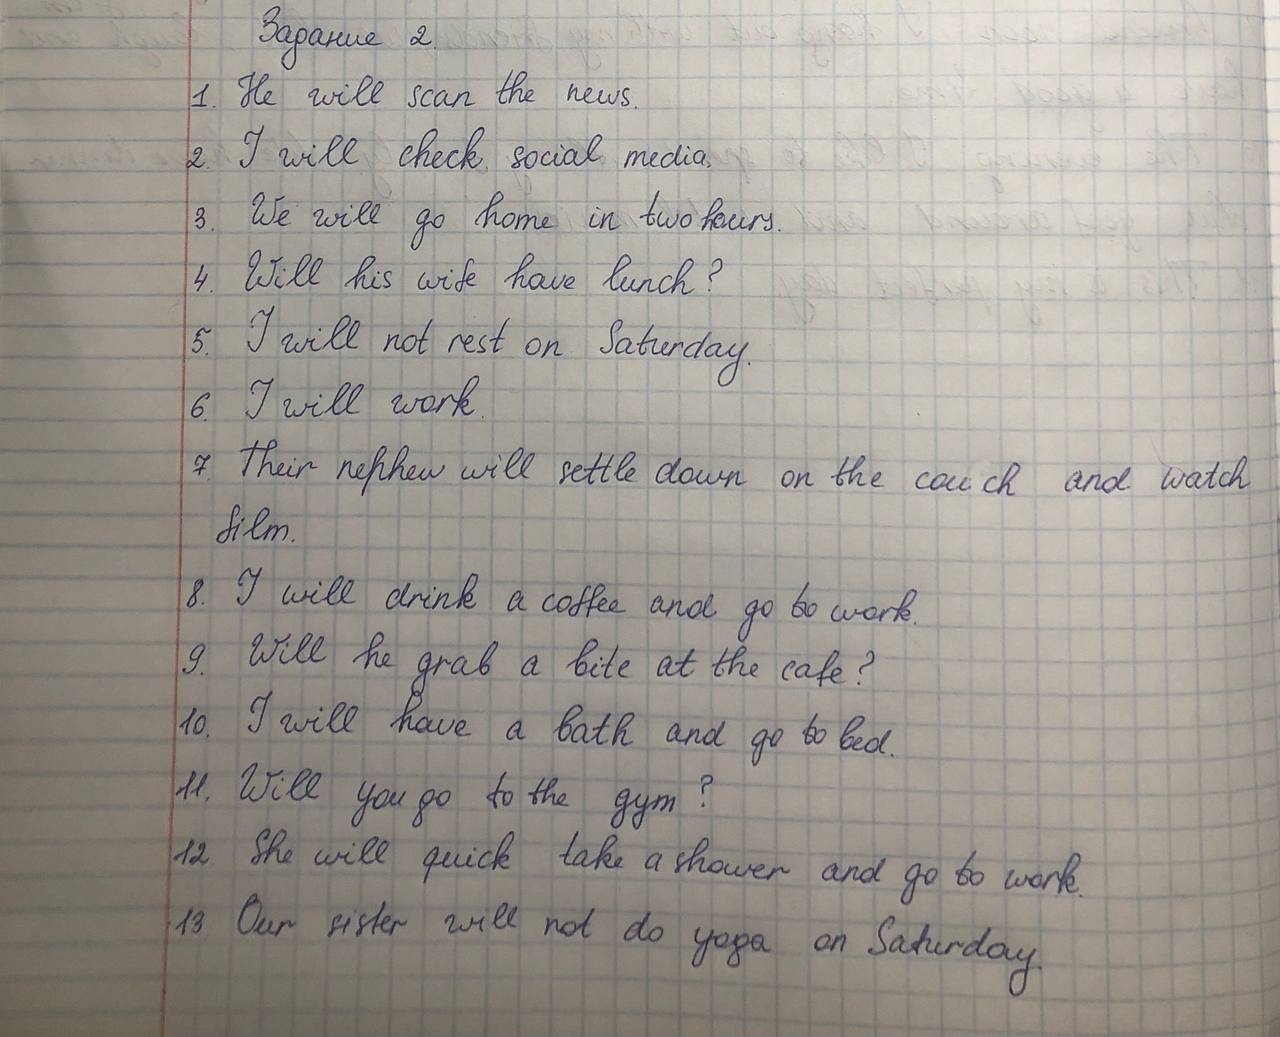 Задание 2.
1. He will scan the news.
2. I will check social media.
3. We will go home in two hours.
4. Will his wife have lunch?
5. I will not rest on Saturday.
6. I will work.
7. Their nephew will settle down on the couch and watch
film.
8. I will drink a coffee and go to work.
9. Will he grab a bite at the cafe?
10. I will have a bath and go to bed.
11. Will you go to the gym?
12. She will quick take a shower and go to work.
13 Our sister will not do yoga on Saturday.